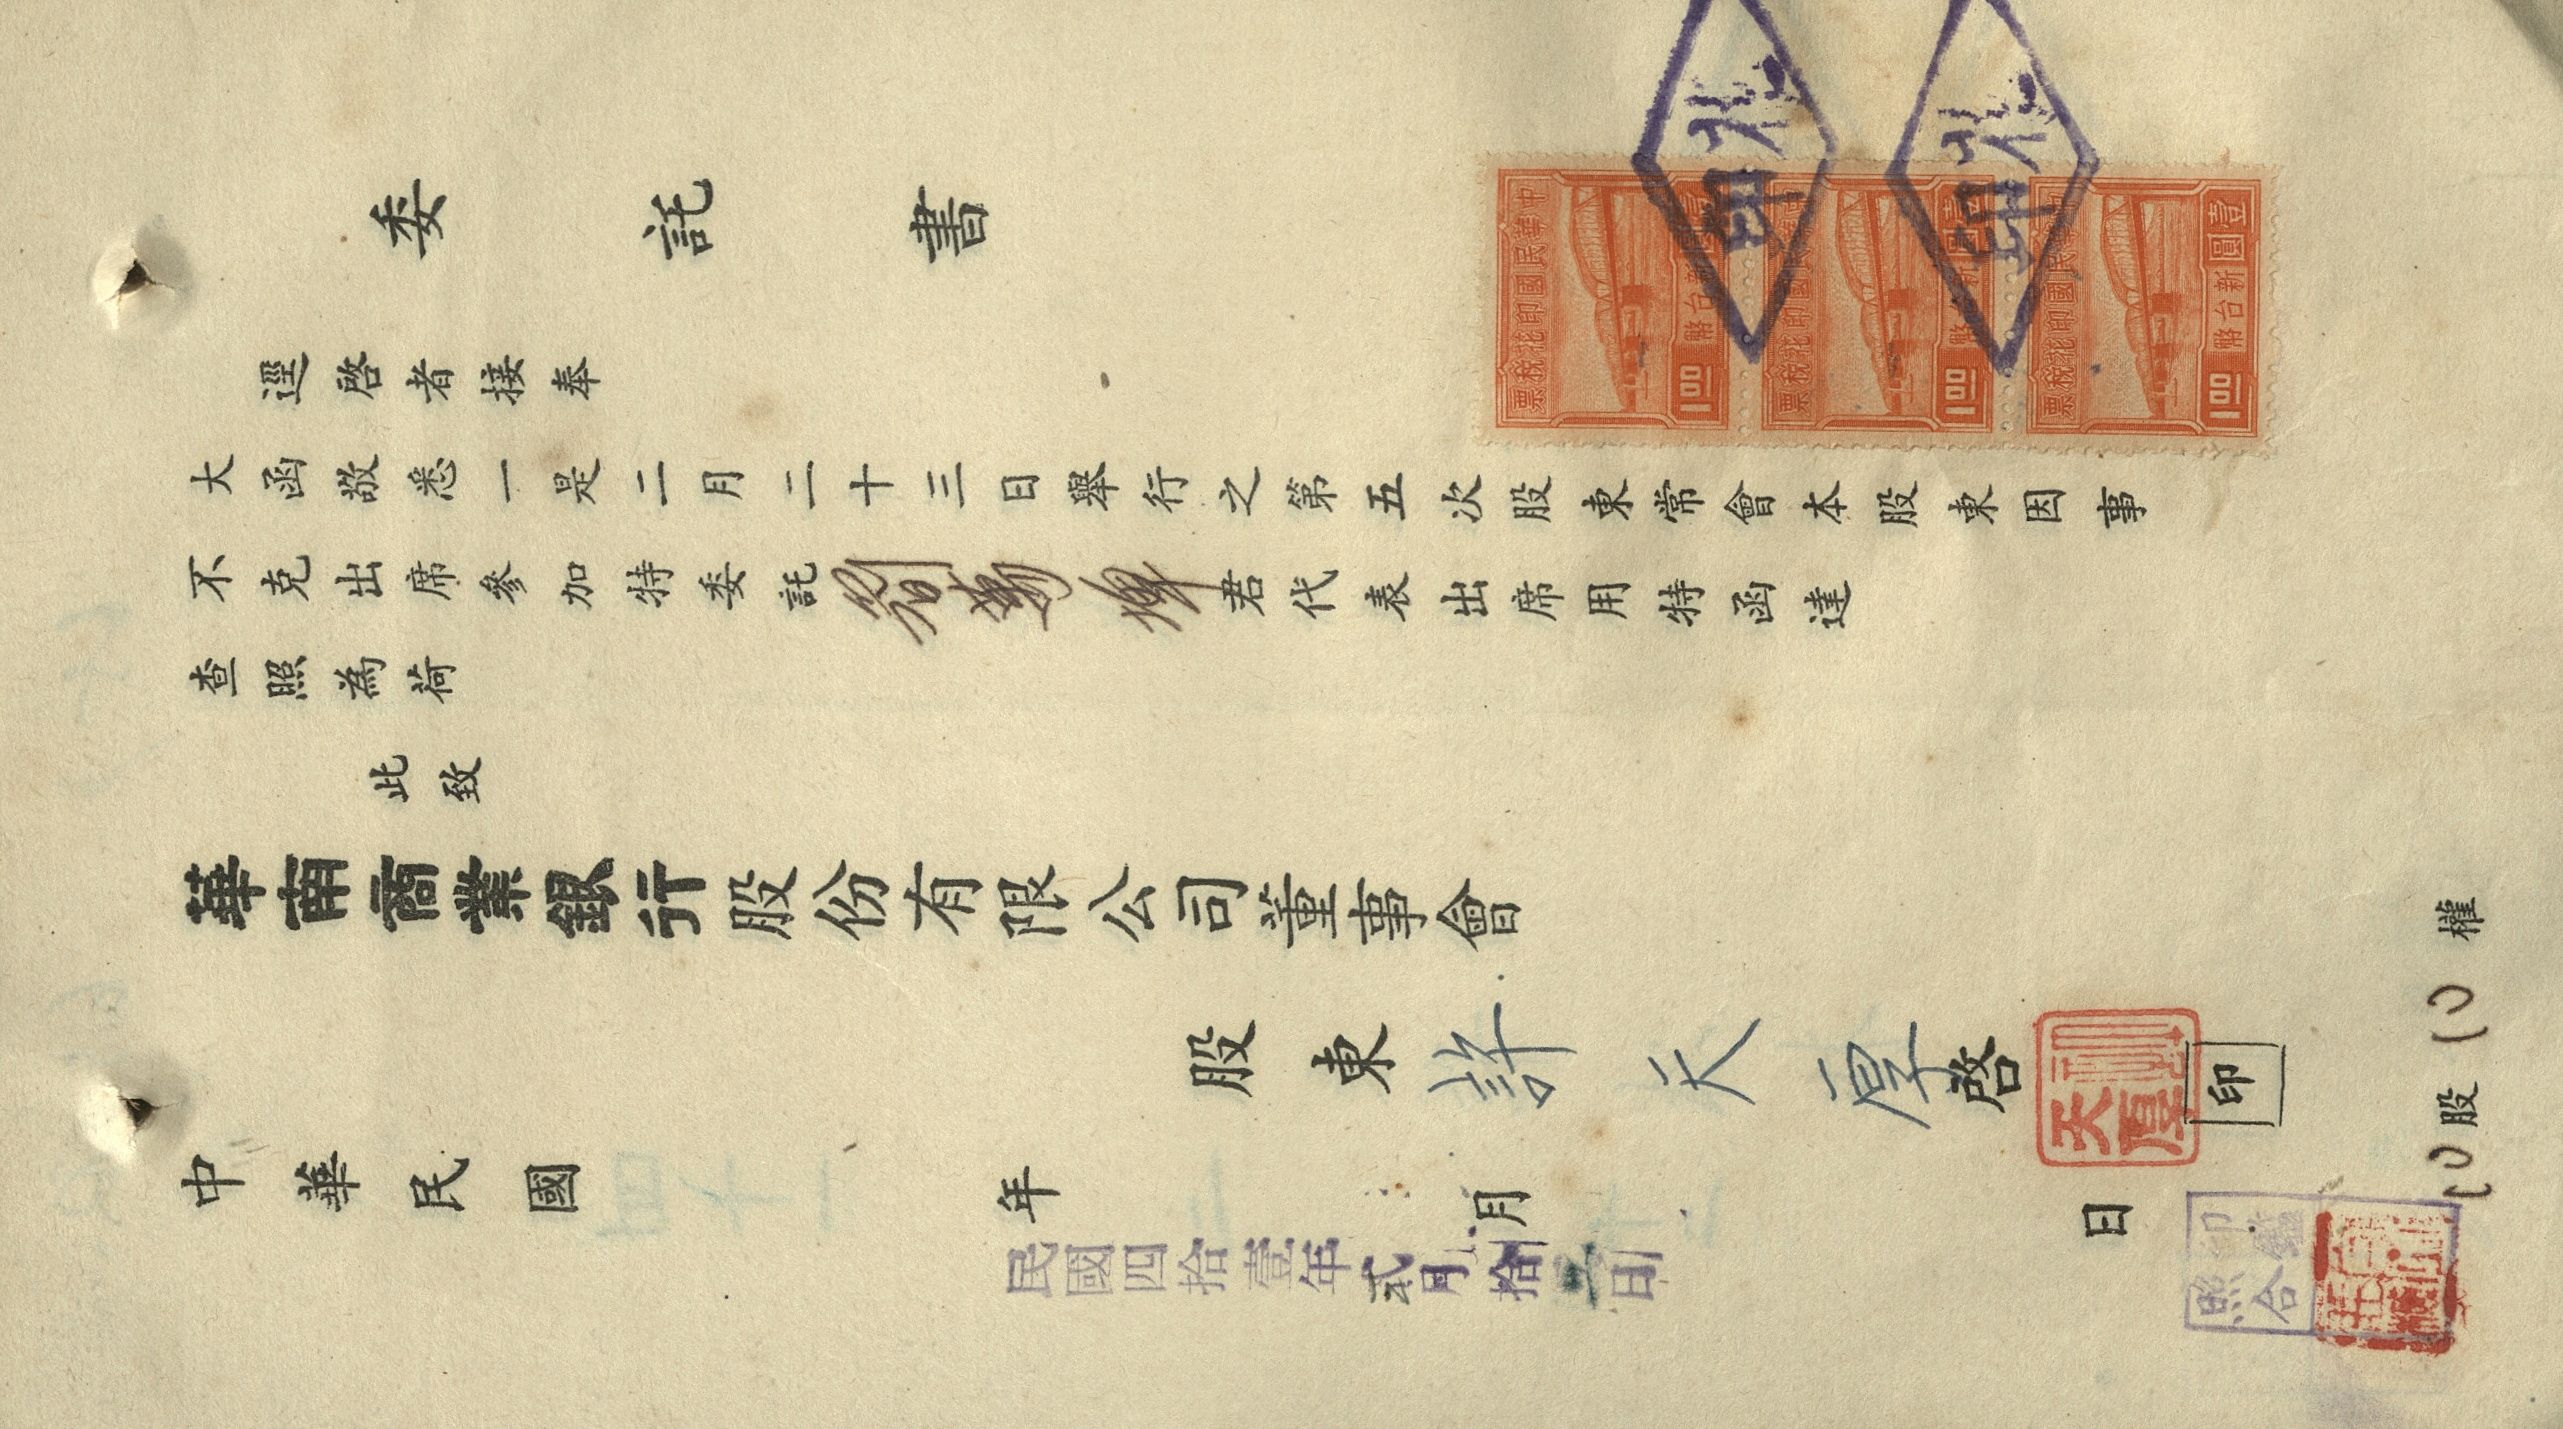 委託書
逕啓者接奉
大函敬悉一是二月二十三日舉行之第五次股東常會本股東因事
不克出席參加特委託劉萬 君代表出席用特函達
查照為荷
此致
華南商業銀行股份有限公司董事會
股東許天厚啓
印
天厚
中華民國 年 月 日
民國四拾壹年貳月拾 日
10股10權
印鑑照合
中華民國印花稅票
壹圓
新台幣
1.00
中華民國印花稅票
壹圓
新台幣
1.00
中華民國印花稅票
壹圓
新台幣
1.00